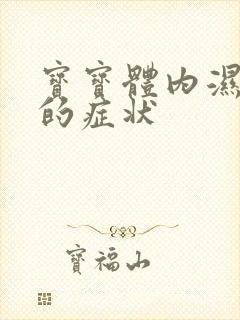 寶寶體內濕
的症状
寶福山